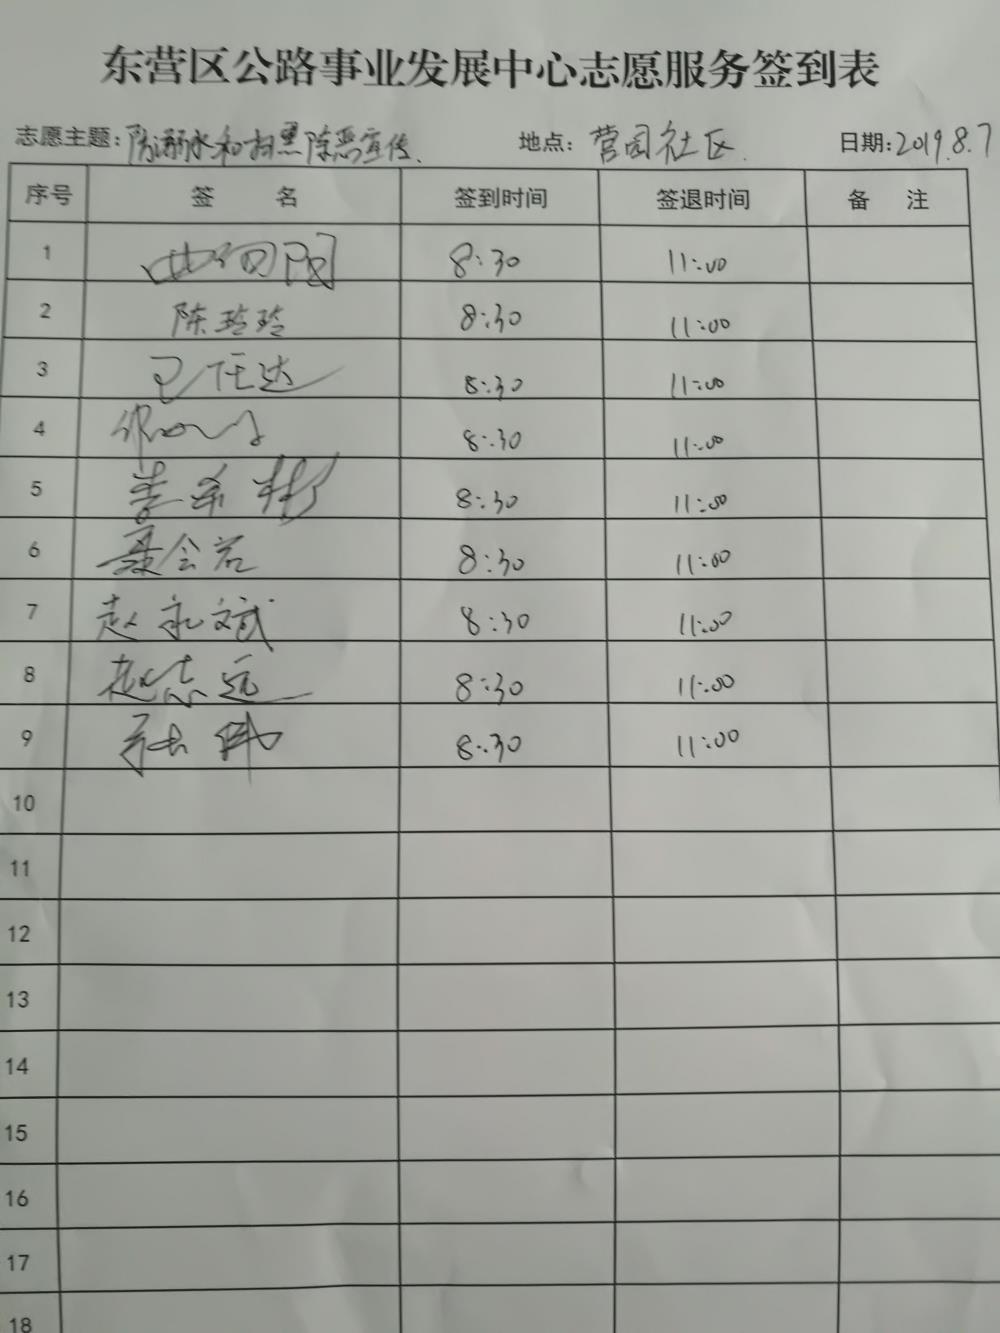 东营区公路事业发展中心志愿服务签到表
志愿主题:防溺水和扫黑除恶宣传 地点:营园社区 日期:2019.8.7
序号 签 名 签到时间 签退时间 备 注
1 8:30 11:00
2 陈玲玲 8:30 11:00
3 8:30 11:00
4 8:30 11:00
5 8:30 11:00
6 8:30 11:00
7 赵永斌 8:30 11:00
8 赵志远 8:30 11:00
9 8:30 11:00
10
11
12
13
14
15
16
17
18